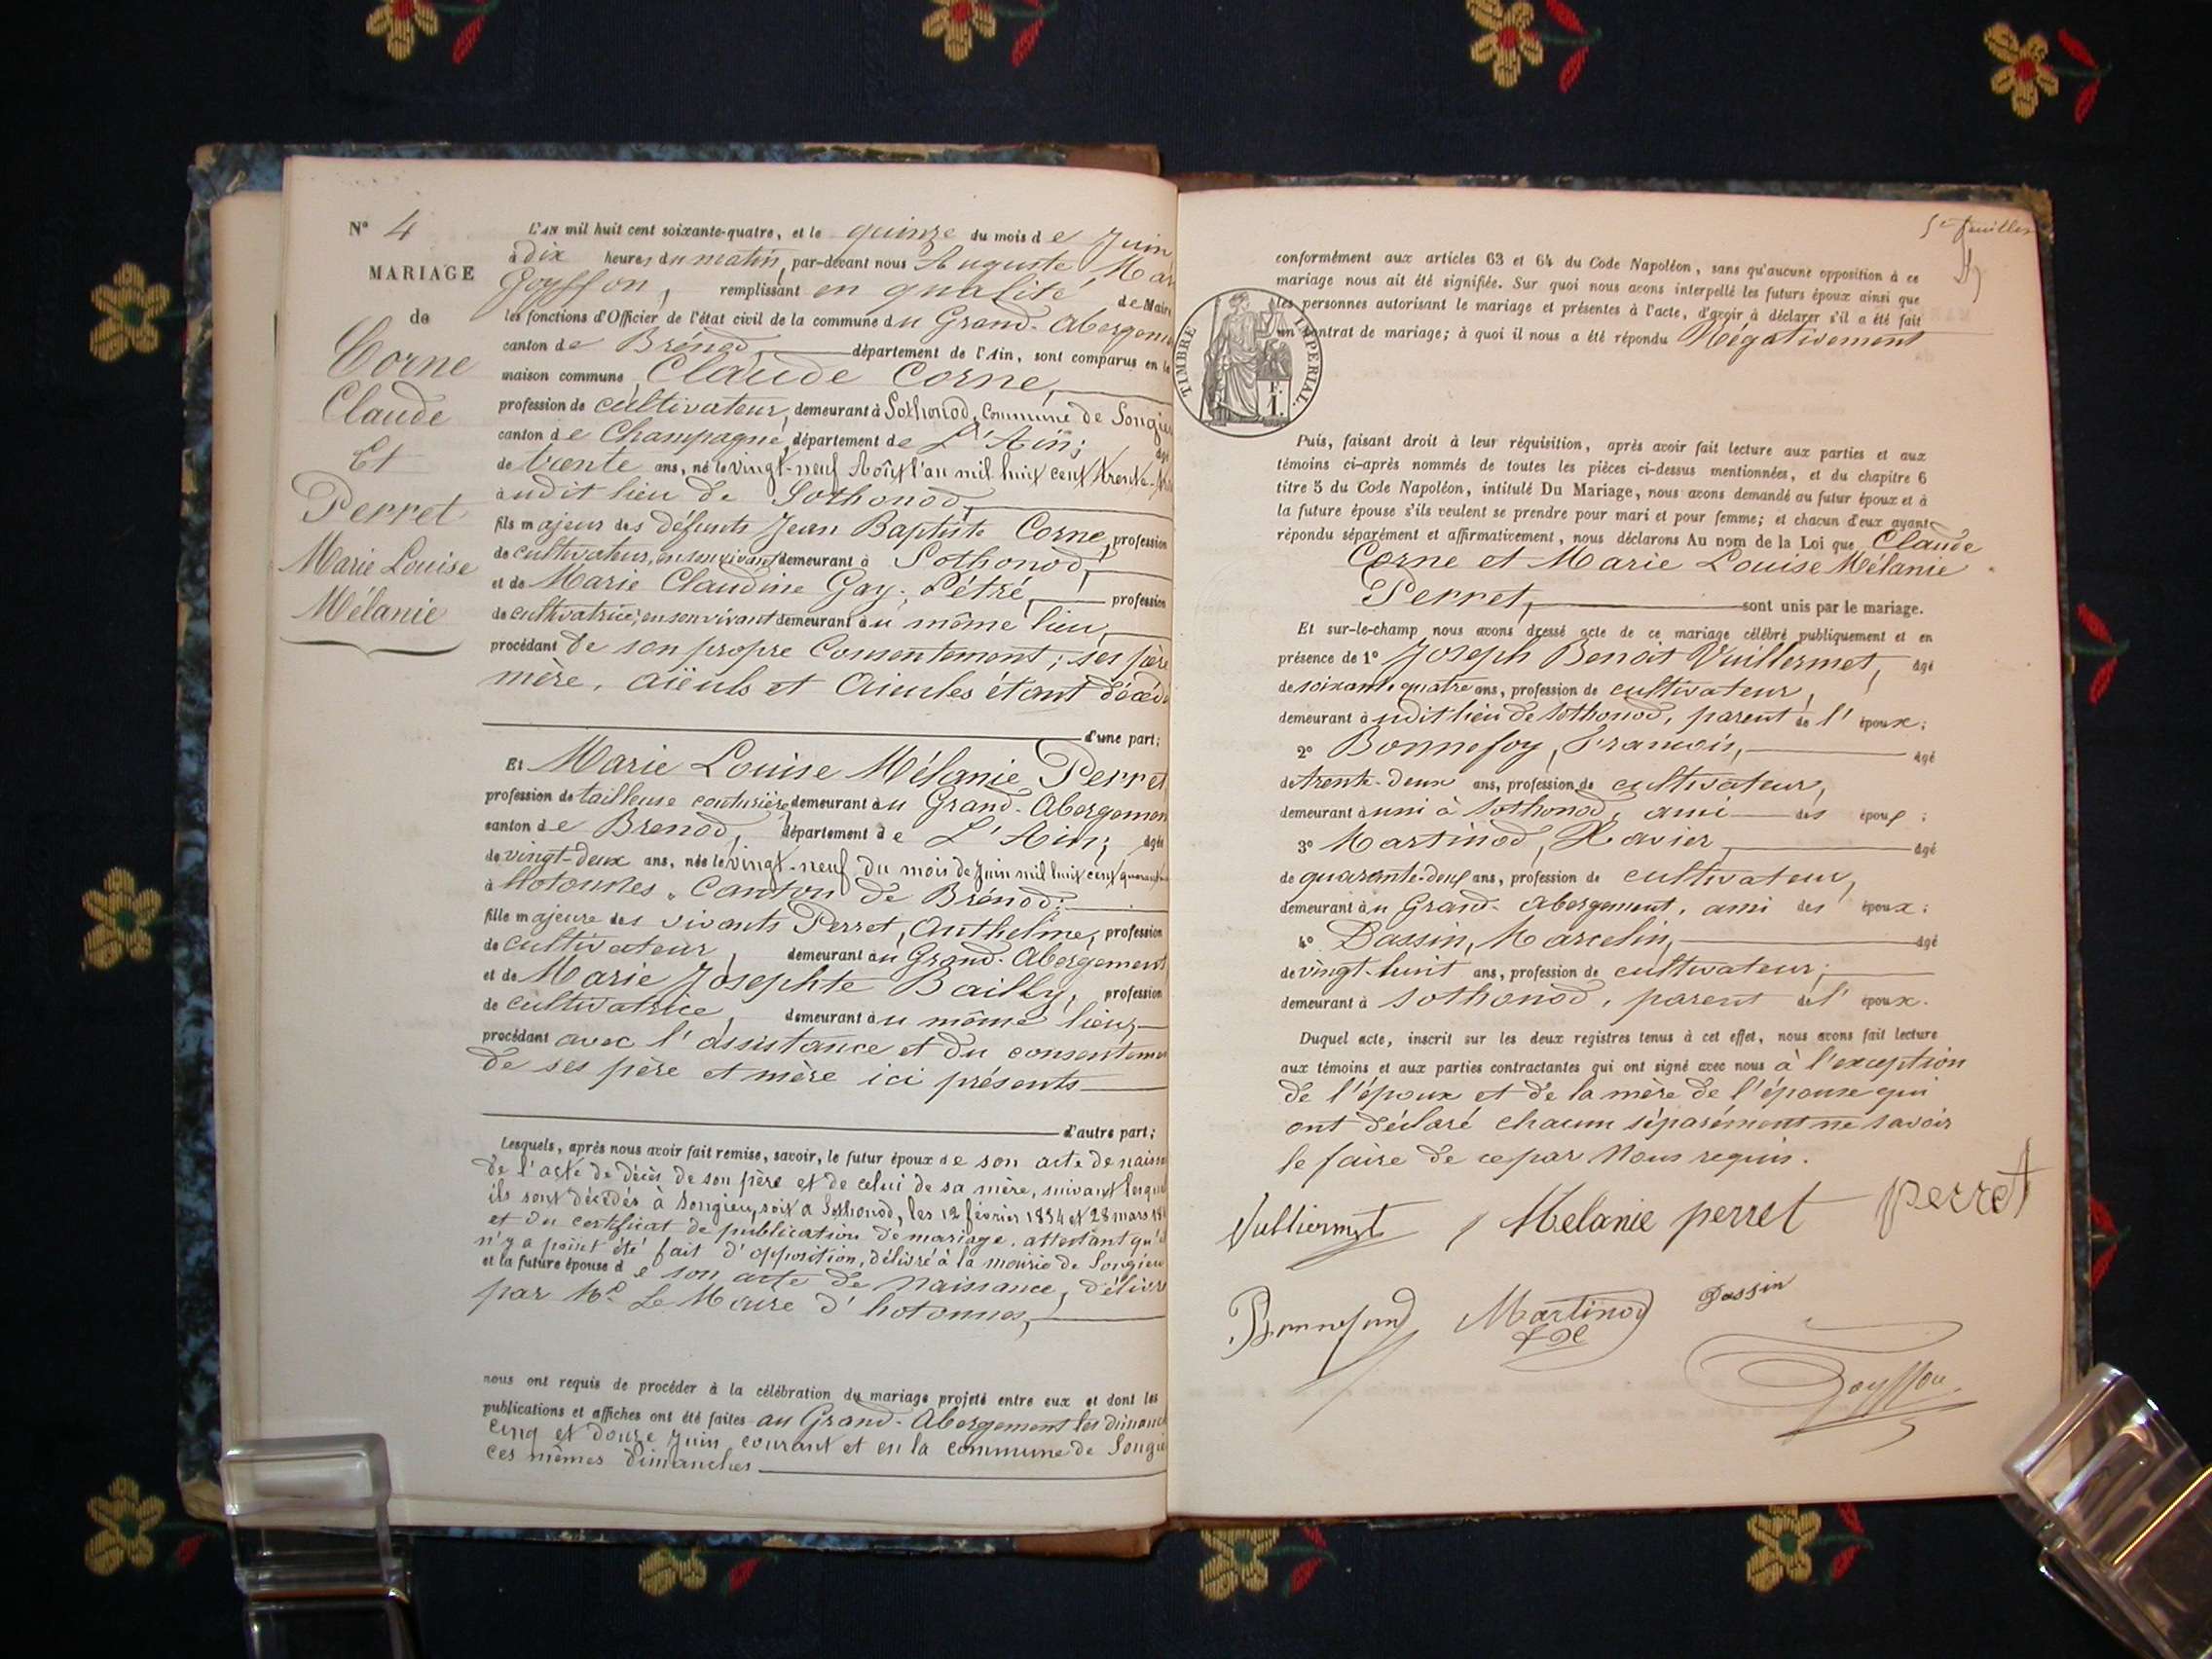 Nº 4
MARIAGE
de
Corne
Claude
Et
Perret
Marie Louise
Mélanie
L'AN mil huit cent soixante-quatre, et le quinze du mois de Juin
à dix heures du matin, par-devant nous Auguste Mar
Goyffon, remplissant en qualité de Maire
les fonctions d'Officier de l'état civil de la commune du Grand-Abergeme
canton de Brénod, département de l'Ain, sont comparus en la
maison commune, Claude Corne,
profession de cultivateur, demeurant à Sothonod, Commune de Songieu
canton de Champagne, département de L'Ain; âgé
de trente ans, né le vingt-neuf Août l'an mil huit cent trente-
audit lieu de Sothonod,
fils majeur des défunts Jean Baptiste Corne, profession
de cultivateur, en son vivant demeurant à Sothonod,
et de Marie Claudine Gay, Pétré, profession
de cultivatrice, en son vivant demeurant au même lieu,
procédant de son propre Consentement; ses père
mère, aïeuls et Aieules étant décédé
d'une part;
Et Marie Louise Mélanie Perret
profession de tailleuse couturière demeurant au Grand-Abergemen
canton de Brenod, département de L'Ain; âgée
de vingt-deux ans, née le vingt-neuf du mois de Juin mil huit cent quarant
à hotonnes, Canton de Brénod;
fille majeure des vivants Perret, Anthelme, profession
de cultivateur, demeurant au Grand-Abergement
et de Marie Josephte Bailly, profession
de cultivatrice, demeurant au même lieu,
procédant avec l'assistance et du consenteme
de ses père et mère ici présents
d'autre part;
Lesquels, après nous avoir fait remise, savoir, le futur époux de son acte de naiss
de l'acte de décès de son père et de celui de sa mère, suivant lesque
ils sont décédés à Songieu, soit à Sothonod, les 12 février 1834 et 28 mars 18
et du certificat de publication de mariage, attestant qu'il
n'y a point été fait d'opposition, délivré à la mairie de Songieu
et la future épouse de son acte de naissance, délivré
par Mr Le Maire d'hotonnes,
nous ont requis de procéder à la célébration du mariage projeté entre eux et dont les
publications et affiches ont été faites au Grand-Abergement les dimanch
cinq et douze Juin courant et en la commune de Songie
ces mêmes Dimanches
5e feuillet
conformément aux articles 63 et 64 du Code Napoléon, sans qu'aucune opposition à ce
mariage nous ait été signifiée. Sur quoi nous avons interpellé les futurs époux ainsi que
les personnes autorisant le mariage et présentes à l'acte, d'avoir à déclarer s'il a été fait
un contrat de mariage; à quoi il nous a été répondu Négativement
TIMBRE IMPERIAL.
Puis, faisant droit à leur réquisition, après avoir fait lecture aux parties et aux
témoins ci-après nommés de toutes les pièces ci-dessus mentionnées, et du chapitre 6
titre 5 du Code Napoléon, intitulé Du Mariage, nous avons demandé au futur époux et à
la future épouse s'ils veulent se prendre pour mari et pour femme; et chacun d'eux ayant
répondu séparément et affirmativement, nous déclarons Au nom de la Loi que Claude
Corne et Marie Louise Mélanie
Perret, sont unis par le mariage.
Et sur-le-champ nous avons dressé acte de ce mariage célébré publiquement et en
présence de 1º Joseph Benoit Vuillermet, âgé
de soixante quatre ans, profession de cultivateur,
demeurant à udit lieu de Sothonod, parent de l'époux;
2º Bonnefoy, Francois, âgé
de trente-deux ans, profession de cultivateur,
demeurant à uni à Sothonod, ami des époux;
3º Martinod, Xavier, âgé
de quarante-deux ans, profession de cultivateur,
demeurant au Grand-Abergement, ami des époux;
4º Dassin, Marcelin, âgé
de vingt-huit ans, profession de cultivateur;
demeurant à Sothonod, parent de l'époux.
Duquel acte, inscrit sur les deux registres tenus à cet effet, nous avons fait lecture
aux témoins et aux parties contractantes qui ont signé avec nous à l'exception
de l'époux et de la mère de l'épouse qui
ont déclaré chacun séparément ne savoir
le faire de ce par Nous requis.
Vulliermet Melanie perret perret
Martinod Dassin
Goyffon